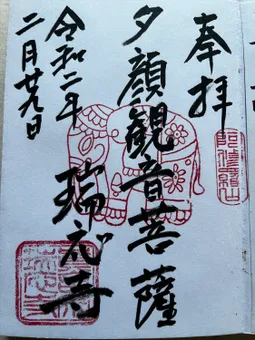 奉拝
夕顔観音菩薩
瑞応寺
令和二年
二月廿九日